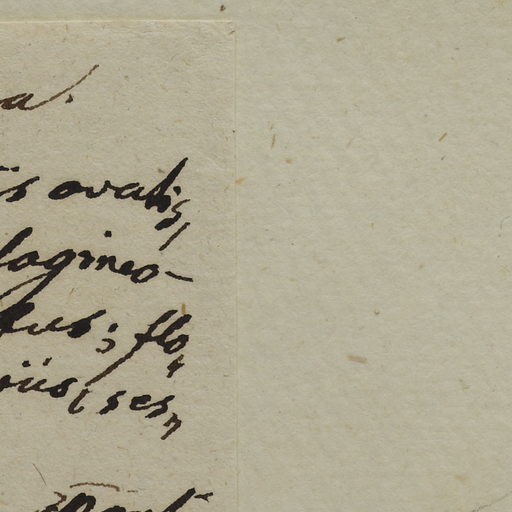 a.
is ovatis,
lagineo-
tus; flo„
iis, ses„